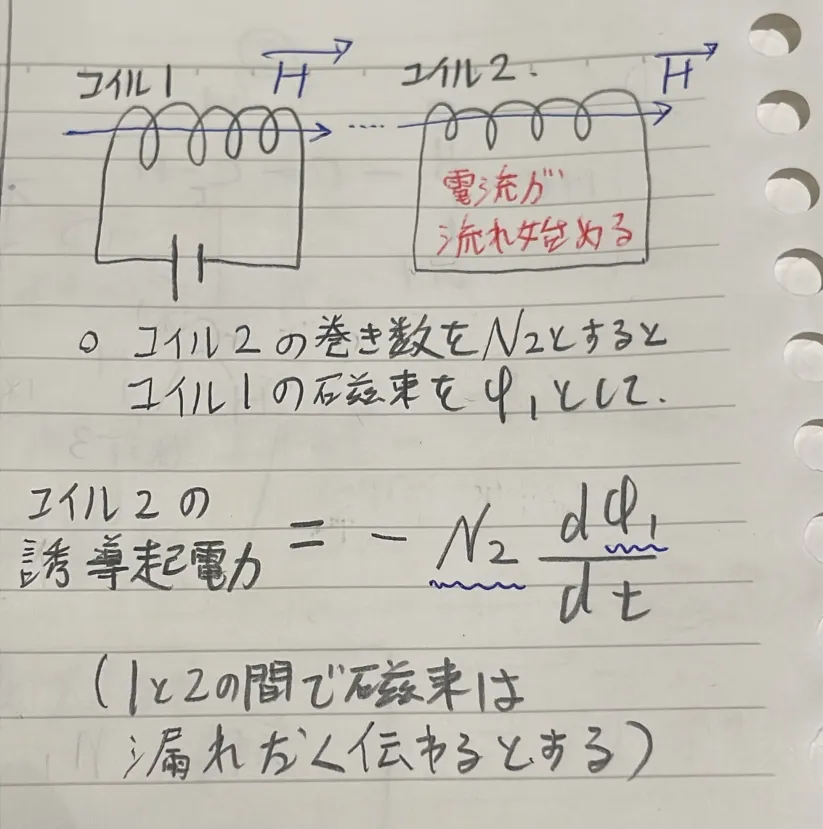 H
コイル1
コイル2.
H
電流が
流れ始める
○ コイル2の巻き数をN₂とすると
コイル1の磁束をφ₁として.
コイル2の
誘導起電力 = - N₂ dφ₁/dt
(1と2の間で磁束は
漏れなく伝わるとする)